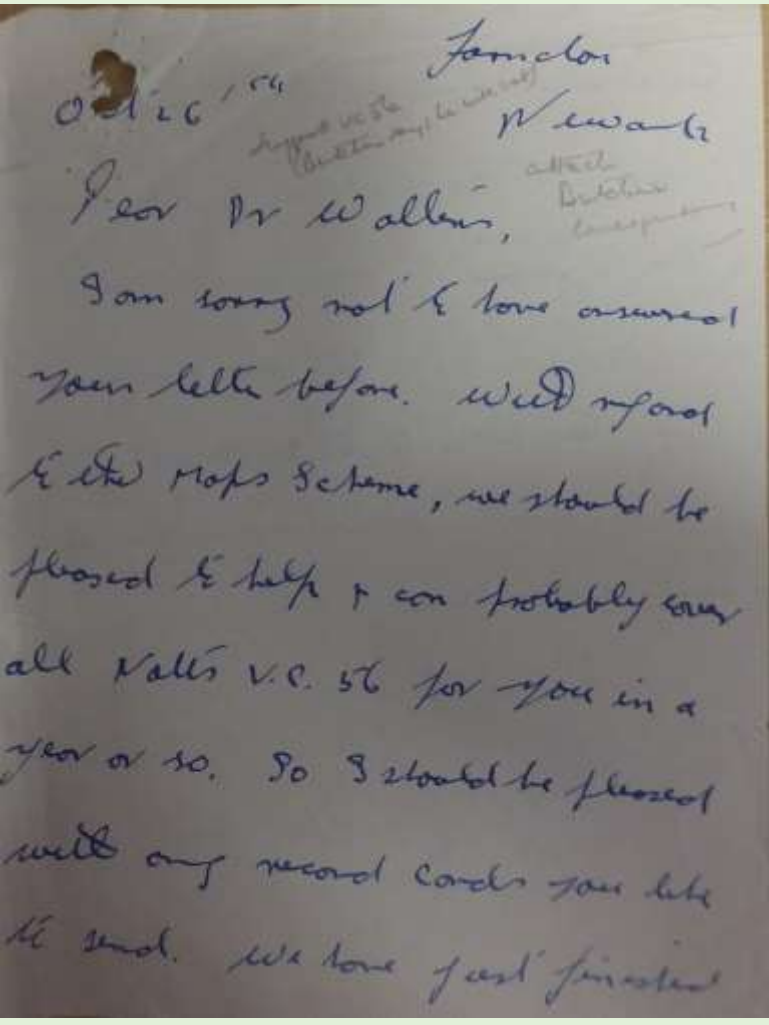 Farndon
Oct 26 '54
Newark
suggest V.C. 56
attach
Butcher
correspondence
Dear Dr Walters,
I am sorry not to have answered
your letter before. With regard
to the Maps Scheme, we should be
pleased to help & can probably cover
all Notts V.C. 56 for you in a
year or so. So I should be pleased
with any record cards you like
to send. We have just finished